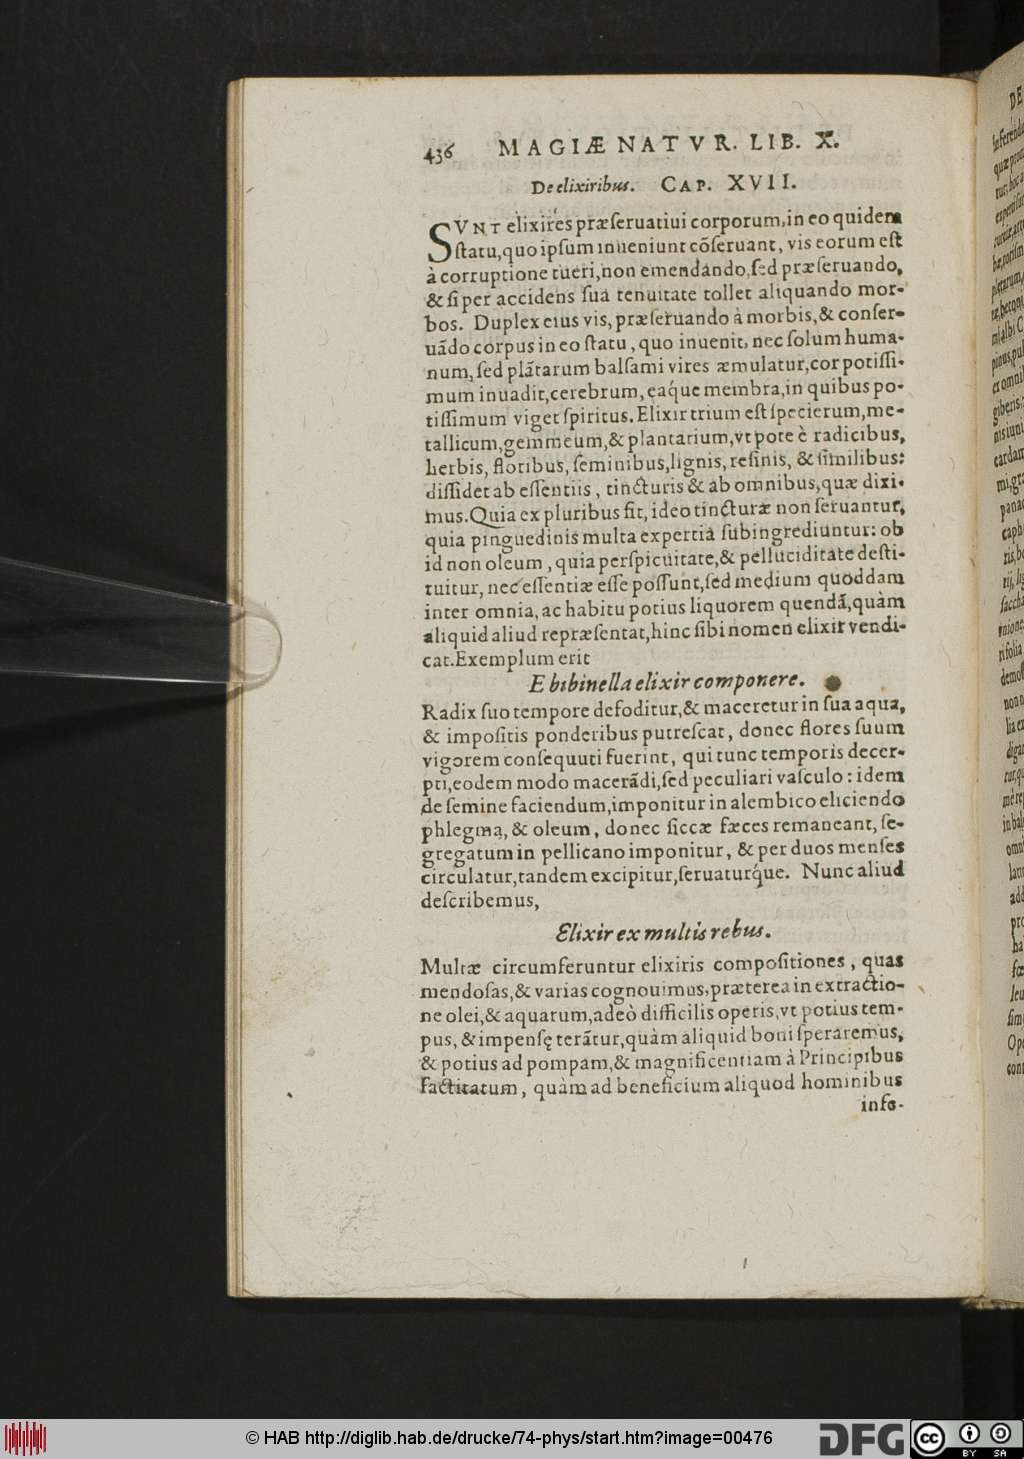 436 MAGIÆ NATVR. LIB. X.
De elixiribus. CAP. XVII.
SVNT elixires præſeruatiui corporum, in eo quidem
ſtatu, quo ipſum inueniunt cõſeruant, vis eorum eſt
à corruptione tueri, non emendando, ſed præſeruando,
& ſi per accidens ſua tenuitate tollet aliquando mor-
bos. Duplex eius vis, præſeruando à morbis, & conſer-
uãdo corpus in eo ſtatu, quo inuenit, nec ſolum huma-
num, ſed plãtarum balſami vires æmulatur, cor potiſſi-
mum inuadit, cerebrum, eaq́ue membra, in quibus po-
tiſſimum viget ſpiritus. Elixir trium eſt ſpecierum, me-
tallicum, gemmeum, & plantarium, vt pote è radicibus,
herbis, floribus, ſeminibus, lignis, reſinis, & ſimilibus:
diſſidet ab eſſentiis, tincturis & ab omnibus, quæ dixi-
mus. Quia ex pluribus fit, ideo tincturæ non ſeruantur,
quia pinguedinis multa expertia ſubingrediuntur: ob
id non oleum, quia perſpicuitate, & pelluciditate deſti-
tuitur, nec eſſentiæ eſſe poſſunt, ſed medium quoddam
inter omnia, ac habitu potius liquorem quendã, quàm
aliquid aliud repræſentat, hinc ſibi nomen elixir vendi-
cat. Exemplum erit
E bibinella elixir componere.
Radix ſuo tempore defoditur, & maceretur in ſua aqua,
& impoſitis ponderibus putreſcat, donec flores ſuum
vigorem conſequuti fuerint, qui tunc temporis decer-
pti, eodem modo macerãdi, ſed peculiari vaſculo: idem
de ſemine faciendum, imponitur in alembico eliciendo
phlegma, & oleum, donec ſiccæ fæces remaneant, ſe-
gregatum in pellicano imponitur, & per duos menſes
circulatur, tandem excipitur, ſeruaturq́ue. Nunc aliud
deſcribemus,
Elixir ex multis rebus.
Multæ circumferuntur elixiris compoſitiones, quas
mendoſas, & varias cognouimus, præterea in extractio-
ne olei, & aquarum, adeò difficilis operis, vt potius tem-
pus, & impenſę terãtur, quàm aliquid boni ſperaremus,
& potius ad pompam, & magnificentiam à Principibus
factitatum, quàm ad beneficium aliquod hominibus
info-
© HAB http://diglib.hab.de/drucke/74-phys/start.htm?image=00476
DFG
cc BY SA